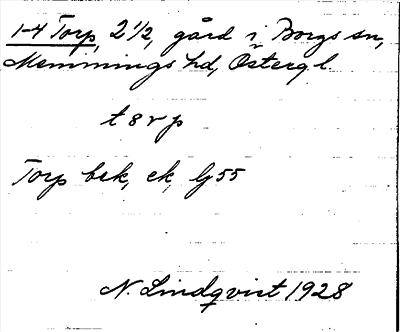 1-4 Torp, 2 1/2, gård i Borgs sn,
Memmings hd, Östergl.
t ɛ r p
Torp bek, ek, lj 55
N. Lindqvist 1928